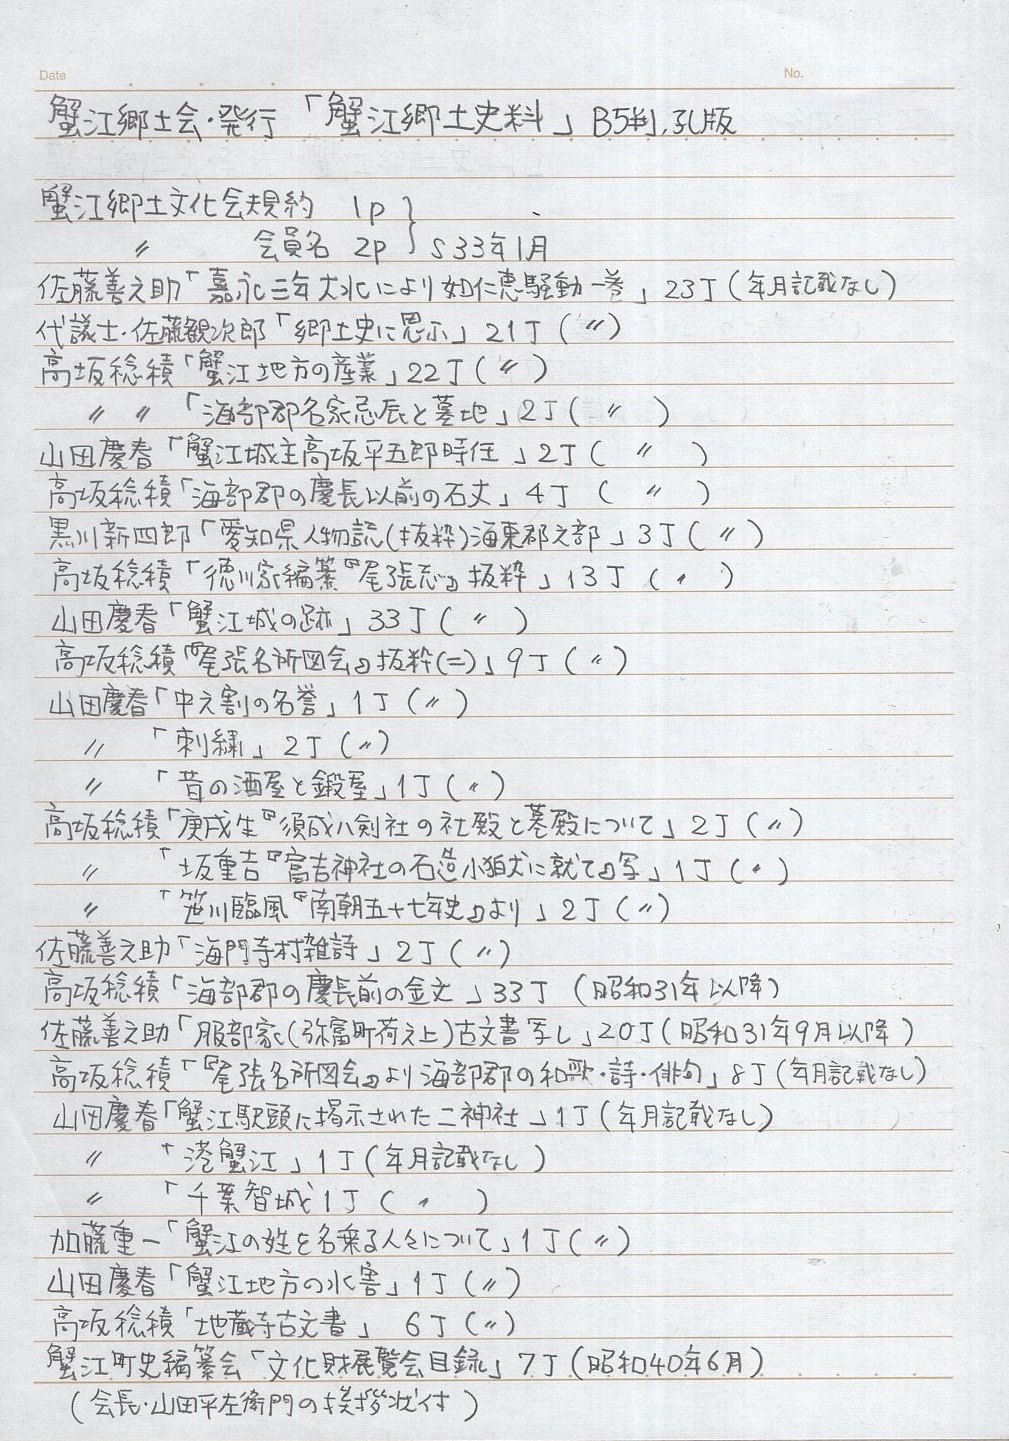 Date
No.
蟹江郷土会・発行「蟹江郷土史料」B5判,孔版
蟹江郷土文化会規約 1p
〃 会員名 2p S33年1月
佐藤善之助「嘉永三年大水により如仁恵騒動一巻」23丁(年月記載なし)
代議士・佐藤観次郎「郷土史に思ふ」21丁(〃)
高坂稔積「蟹江地方の産業」22丁(〃)
〃 〃 「海部郡名家忌辰と墓地」2丁(〃)
山田慶春「蟹江城主高坂平五郎時任」2丁(〃)
高坂稔積「海部郡の慶長以前の石文」4丁(〃)
黒川新四郎「愛知県人物誌(抜粋)海東郡之部」3丁(〃)
高坂稔積「徳川家編纂『尾張志』抜粋」13丁(〃)
山田慶春「蟹江城の跡」33丁(〃)
高坂稔積『尾張名所図会』抜粋(二)」9丁(〃)
山田慶春「中之割の名誉」1丁(〃)
〃 「刺繍」2丁(〃)
〃 「昔の酒屋と鍛屋」1丁(〃)
高坂稔積「庚戌生『須成八剣社の社殿と墓殿について」2丁(〃)
〃 「坂重吉『富吉神社の石造小狛犬に就て』写」1丁(〃)
〃 「笹川臨風『南朝五十七年史』より」2丁(〃)
佐藤善之助「海門寺村雑詩」2丁(〃)
高坂稔積「海部郡の慶長前の金文」33丁(昭和31年以降)
佐藤善之助「服部家(弥富町荷之上)古文書写し」20丁(昭和31年9月以降)
高坂稔積「『尾張名所図会』より海部郡の和歌・詩・俳句」8丁(年月記載なし)
山田慶春「蟹江駅頭に掲示された二神社」1丁(年月記載なし)
〃 「港蟹江」1丁(年月記載なし)
〃 「千葉智城」1丁(〃)
加藤重一「蟹江の姓を名乗る人々について」1丁(〃)
山田慶春「蟹江地方の水害」1丁(〃)
高坂稔積「地蔵寺古文書」 6丁(〃)
蟹江町史編纂会「文化財展覧会目録」7丁(昭和40年6月)
(会長・山田平左衛門の挨拶状付)